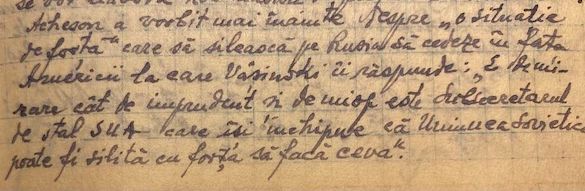 se vor
Acheson a vorbit mai înainte despre „o situație
de forță" care să silească pe Rusia să cedeze în fața
Americii la care Vâșinski îi răspunde: „E de mi-
rare cât de imprudent și de miop este Subsecretarul
de stat SUA care își închipue că Uniunea Sovietic
poate fi silită cu forța să facă ceva".